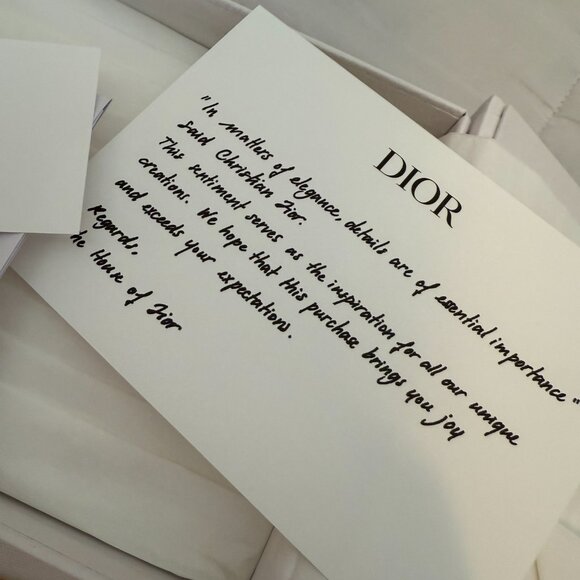 DIOR
"In matters of elegance, details are of essential importance"
said Christian Dior.
This sentiment serves as the inspiration for all our unique
creations. We hope that this purchase brings you joy
and exceeds your expectations.
Regards,
he House of Dior